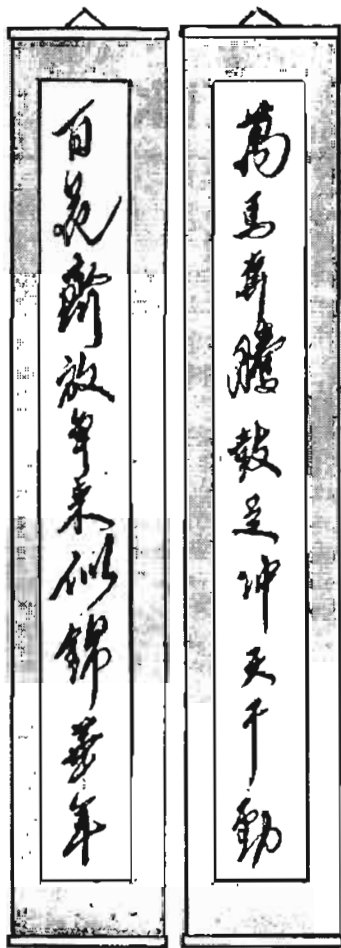 萬馬奔騰鼓足冲天干勁
百花齊放爭来似錦華年